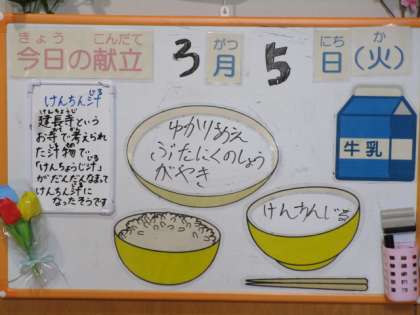 きょう こんだて
今日の献立
3
がつ
月
5
にち
日
か
(火)
けんちん汁
じる
けんちょうじ
建長寺という
お寺で考えられ
た汁物で
じる
「けんちょうじ汁」
がだんだんなまって
けんちん汁に
なったそうです
ゆかりあえ
ぶたにくのしょう
がやき
けんちんじる
牛乳